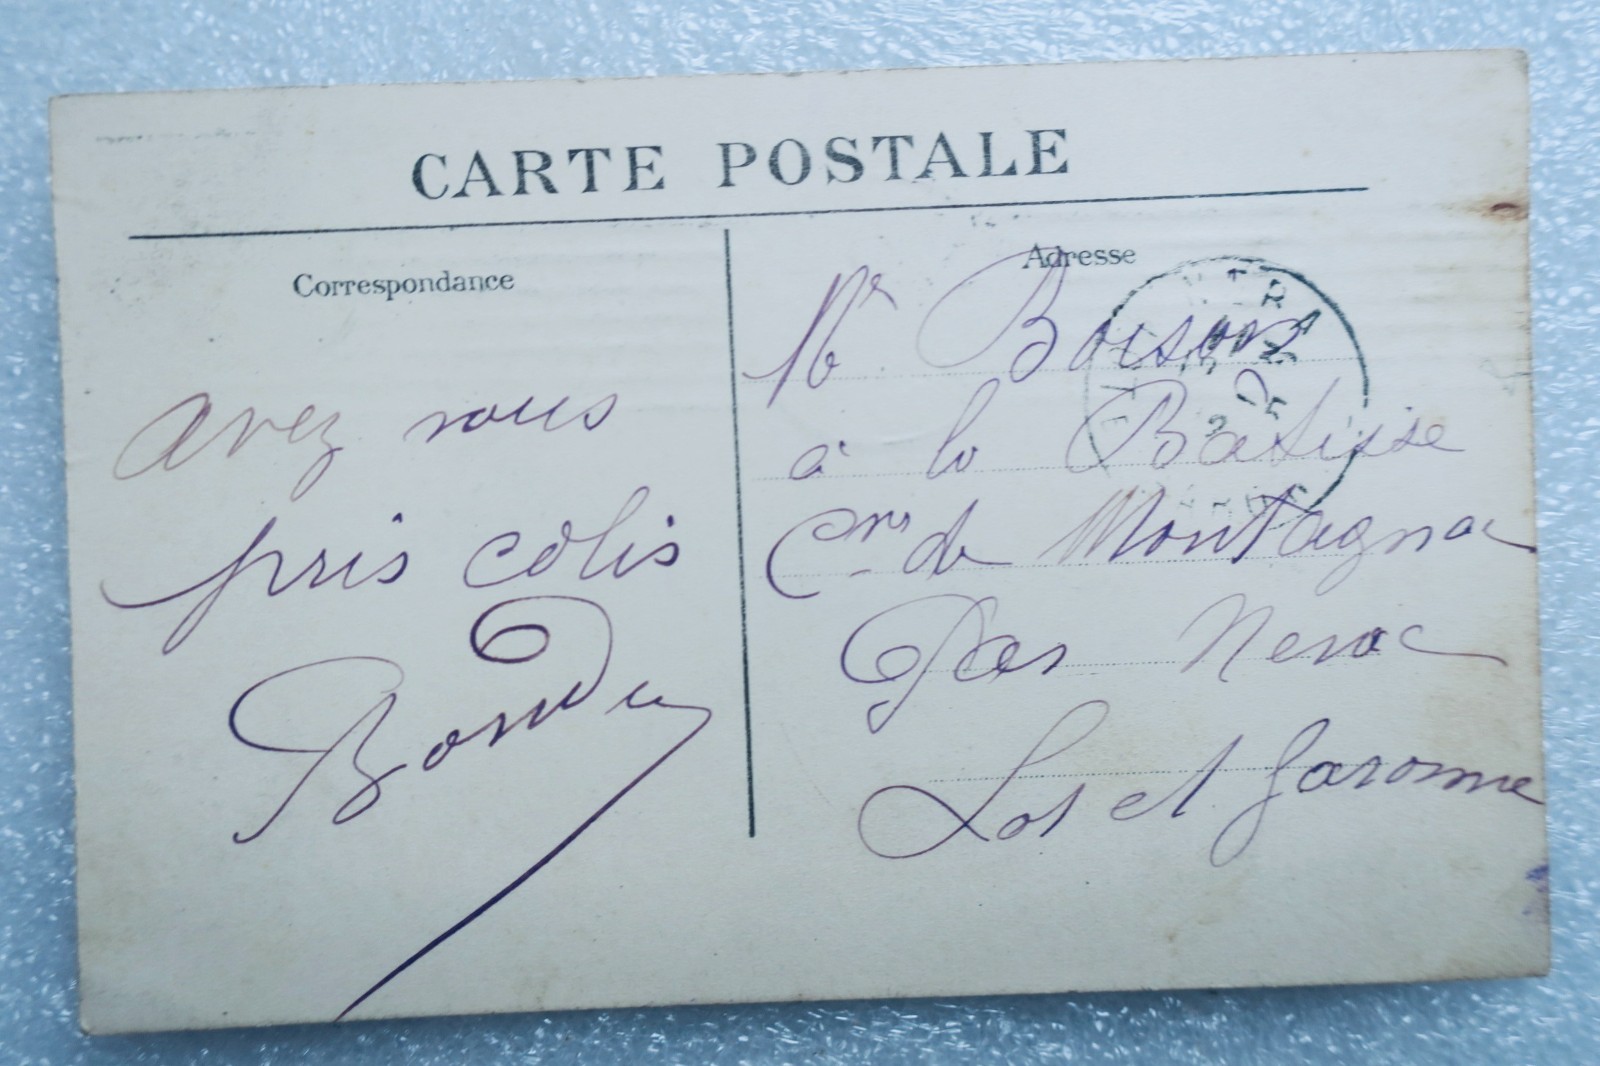 CARTE POSTALE
Correspondance
avez vous
pris colis
Adresse
Mr Boison
à la Batisse
Cne de Montagnac
Par Nerac
Lot et Garonne